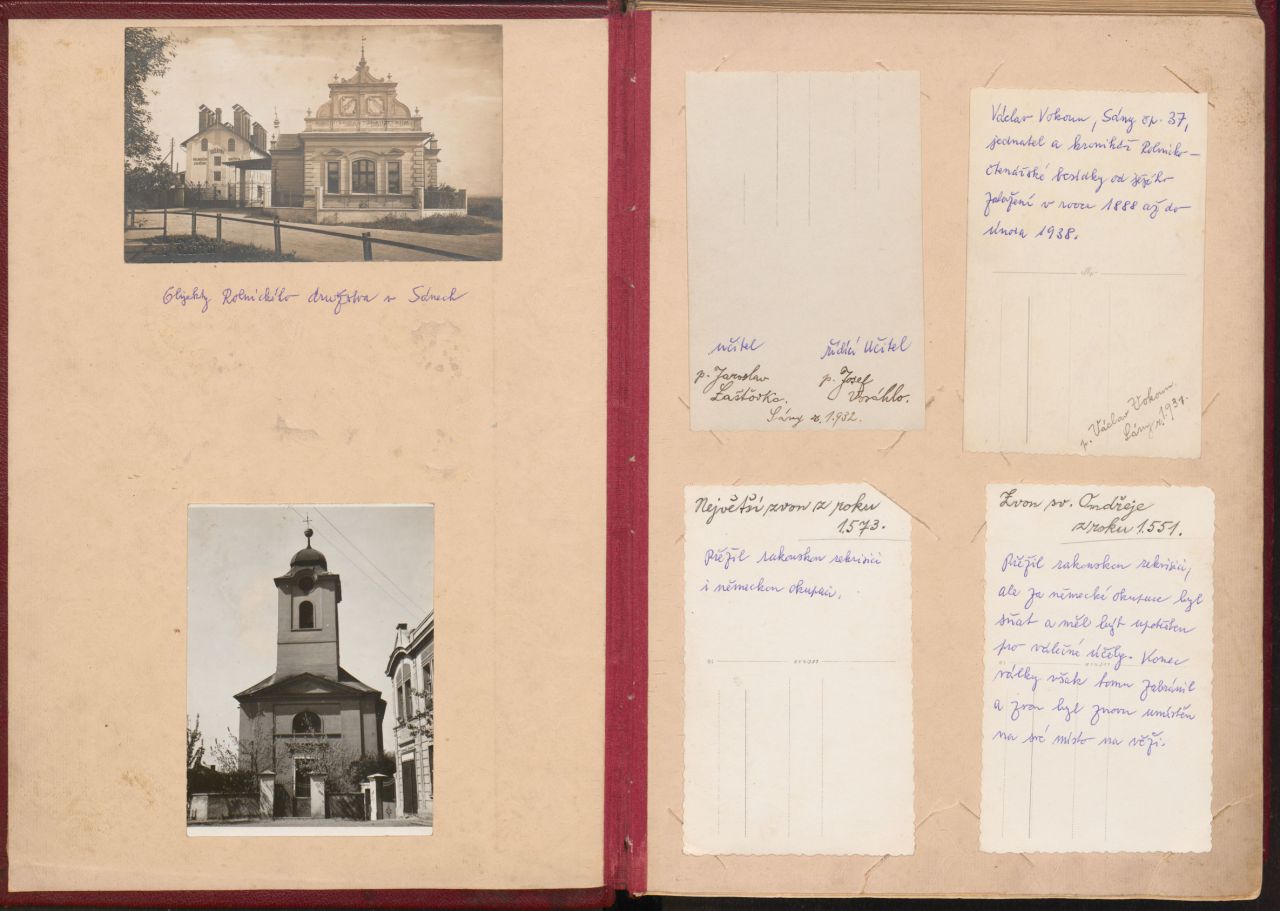 Objekty Rolnického družstva v Sánech
učitel řídící učitel
p. Jaroslav p. Josef
Laštovka.
Sány r. 1.932.
Václav Vokoun, Sány čp. 37,
jednatel a kronikář Rolnicko-
čtenářské besídky od jejího
založení v roce 1888 až do
února 1938.
p. Václav Vokoun
Sány r. 1.937.
Největší zvon z roku
1.573.
Přežil rakouskou rekvisici
i německou okupaci.
Zvon sv. Ondřeje
z roku 1.551.
Přežil rakouskou rekvisici,
ale za německé okupace byl
sňat a měl býti upotřeben
pro válečné účely. Konec
války však tomu zabránil
a zvon byl znovu umístěn
na své místo na věži.